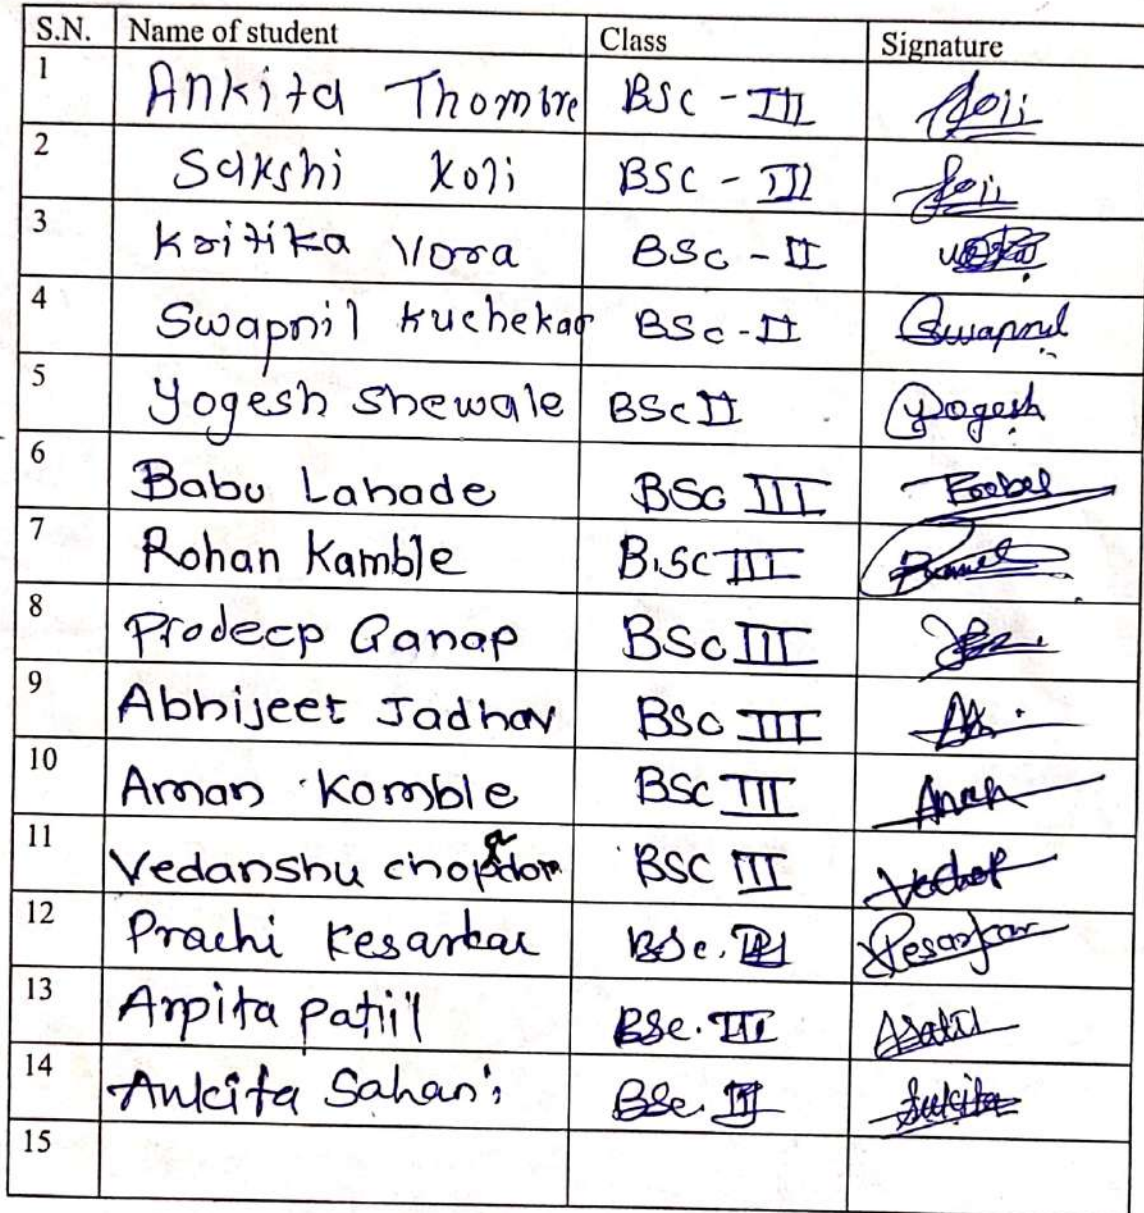 S.N. Name of student Class Signature
1 Ankita Thombre BSC - III
2 Sakshi Koli BSC - III Koli
3 Kritika Vora BSc - II
4 Swapnil Kuchekar BSc - II Swapnil
5 Yogesh Shewale BSc II Yogesh
6 Babu Lahade BSc III
7 Rohan Kamble B.SC III
8 Prodeep Ganap BSc III
9 Abhijeet Jadhav BSc III
10 Aman Komble BSC III Aman
11 Vedanshu chopdar BSC III
12 Prachi Kesarkar BSc. Kesarkar
13 Arpita Patiil BSc. III APatil
14 Ankita Sahani BSc. Ankita
15